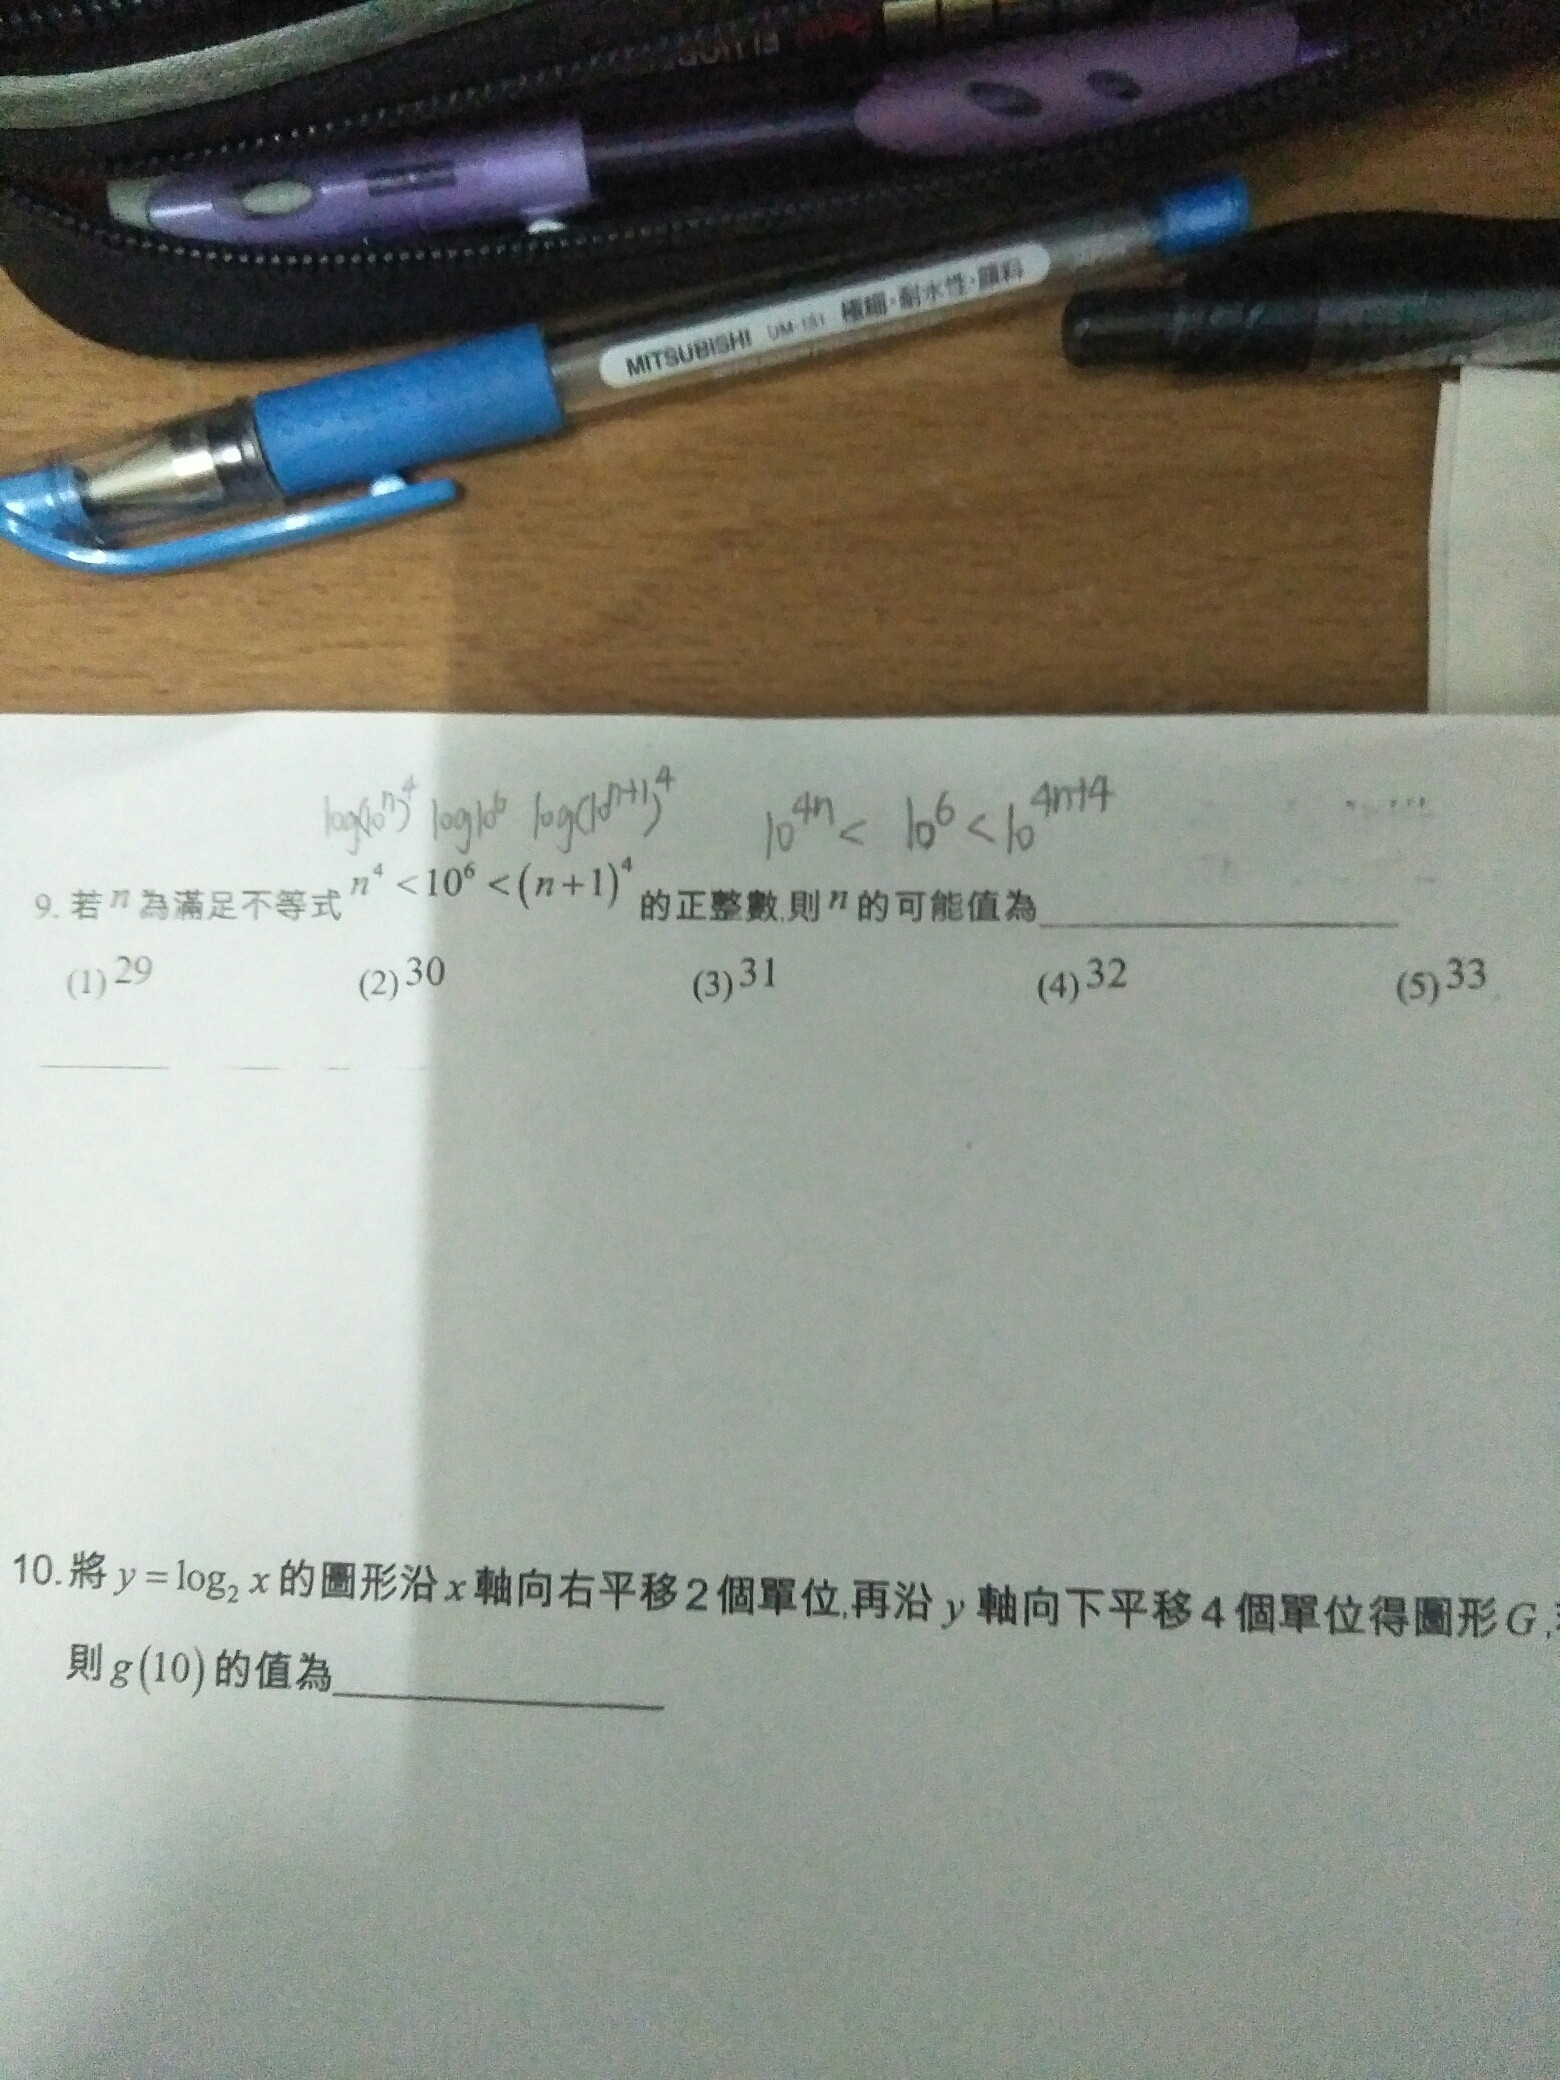 MITSUBISHI UM-151 極細・耐水性・顔料
log(10ⁿ)⁴ log10⁶ log(10ⁿ⁺¹)⁴ 10⁴ⁿ < 10⁶ < 10⁴ⁿ⁺⁴
9. 若 n 為滿足不等式 n⁴ < 10⁶ < (n+1)⁴ 的正整數,則 n 的可能值為
(1) 29 (2) 30 (3) 31 (4) 32 (5) 33
10. 將 y = log₂ x 的圖形沿 x 軸向右平移 2 個單位,再沿 y 軸向下平移 4 個單位得圖形 G,
則 g(10) 的值為